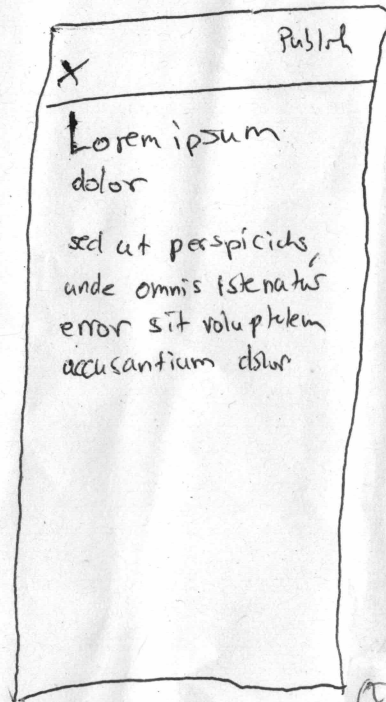 Publish
X
Lorem ipsum
dolor
sed ut perspiciatis,
unde omnis iste natus
error sit voluptatem
accusantium dolor